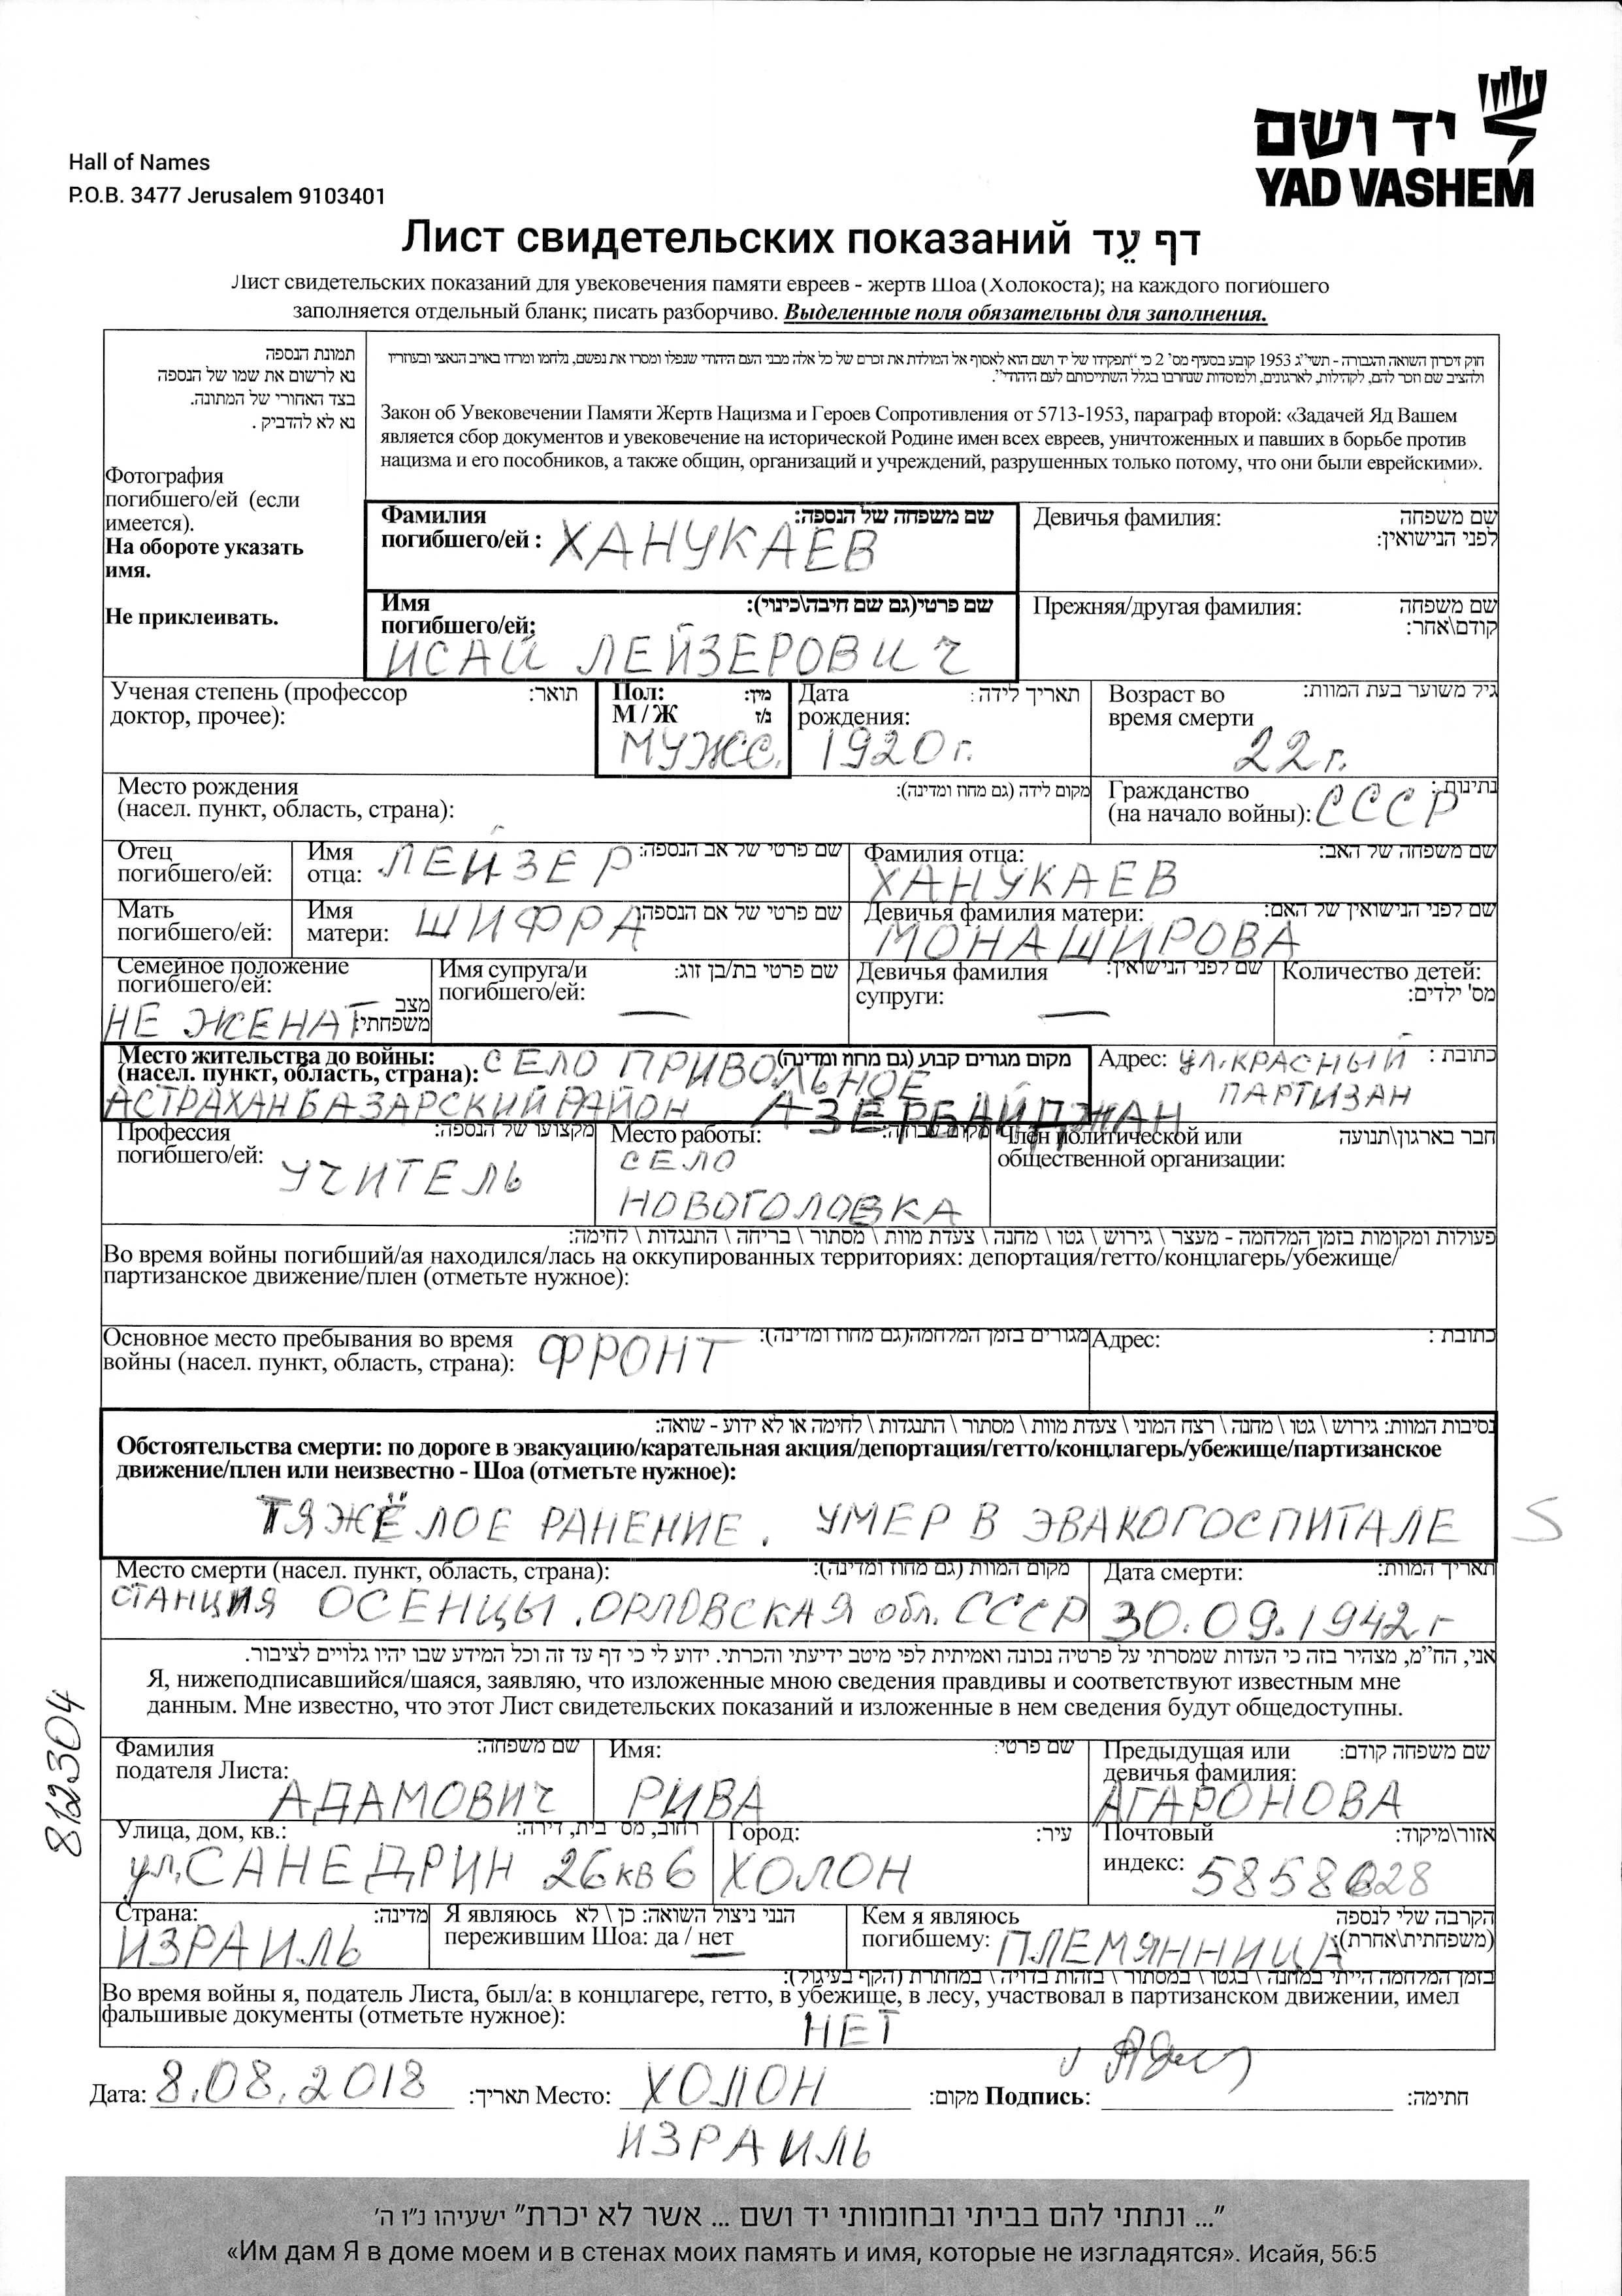 יד ושם
YAD VASHEM
Hall of Names
P.O.B. 3477 Jerusalem 9103401
Лист свидетельских показаний דף עֵד
Лист свидетельских показаний для увековечения памяти евреев - жертв Шоа (Холокоста); на каждого погибшего
заполняется отдельный бланк; писать разборчиво. Выделенные поля обязательны для заполнения.
תמונת הנספה
נא לרשום את שמו של הנספה
בצד האחורי של המתונה.
נא לא להדביק .
Фотография
погибшего/ей (если
имеется).
На обороте указать
имя.
Не приклеивать.
חוק זיכרון השואה והגבורה - תשי"ג 1953 קובע בסעיף מס' 2 כי "תפקידו של יד ושם הוא לאסוף אל המולדת את זכרם של כל אלה מבני העם היהודי שנפלו ומסרו את נפשם, נלחמו ומרדו באויב הנאצי ובעוזריו
ולהציב שם וזכר להם, לקהילות, לארגונים, ולמוסדות שנחרבו בגלל השתייכותם לעם היהודי".
Закон об Увековечении Памяти Жертв Нацизма и Героев Сопротивления от 5713-1953, параграф второй: «Задачей Яд Вашем
является сбор документов и увековечение на исторической Родине имен всех евреев, уничтоженных и павших в борьбе против
нацизма и его пособников, а также общин, организаций и учреждений, разрушенных только потому, что они были еврейскими».
Фамилия שם משפחה של הנספה:
погибшего/ей : ХАНУКАЕВ
Девичья фамилия: שם משפחה
לפני הנישואין:
Имя שם פרטי(גם שם חיבה\כינוי):
погибшего/ей:
ИСАЙ ЛЕЙЗЕРОВИЧ
Прежняя/другая фамилия: שם משפחה
קודם\אחר:
Ученая степень (профессор תואר:
доктор, прочее):
Пол: מין:
М / Ж ז/נ
МУЖС.
Дата תאריך לידה :
рождения:
1920 г.
Возраст во גיל משוער בעת המוות:
время смерти
22 г.
Место рождения מקום לידה (גם מחוז ומדינה):
(насел. пункт, область, страна):
Гражданство נתינות :
(на начало войны): СССР
Отец
погибшего/ей:
Имя שם פרטי של אב הנספה:
отца: ЛЕЙЗЕР
Фамилия отца: שם משפחה של האב:
ХАНУКАЕВ
Мать
погибшего/ей:
Имя שם פרטי של אם הנספה:
матери: ШИФРА
Девичья фамилия матери: שם לפני הנישואין של האם:
МОНАШИРОВА
Семейное положение
погибшего/ей: מצב
משפחתי:
НЕ ЖЕНАТ
Имя супруга/и שם פרטי בת/בן זוג:
погибшего/ей:
—
Девичья фамилия שם לפני הנישואין:
супруги:
—
Количество детей:
מס' ילדים:
Место жительства до войны: מקום מגורים קבוע (גם מחוז ומדינה)
(насел. пункт, область, страна): СЕЛО ПРИВОЛЬНОЕ
АСТРАХАНБАЗАРСКИЙ РАЙОН АЗЕРБАЙДЖАН
Адрес: УЛ. КРАСНЫЙ כתובת :
ПАРТИЗАН
Профессия מקצועו של הנספה:
погибшего/ей:
УЧИТЕЛЬ
Место работы: מקום עבודה:
СЕЛО
НОВОГОЛОВКА
Член политической или חבר בארגון\תנועה
общественной организации:
פעולות ומקומות בזמן המלחמה - מעצר \ גירוש \ גטו \ מחנה \ צעדת מוות \ מסתור \ בריחה \ התנגדות \ לחימה:
Во время войны погибший/ая находился/лась на оккупированных территориях: депортация/гетто/концлагерь/убежище/
партизанское движение/плен (отметьте нужное):
Основное место пребывания во время מגורים בזמן המלחמה(גם מחוז ומדינה):
войны (насел. пункт, область, страна): ФРОНТ
Адрес: כתובת :
נסיבות המוות: גירוש \ גטו \ מחנה \ רצח המוני \ צעדת מוות \ מסתור \ התנגדות \ לחימה או לא ידוע - שואה:
Обстоятельства смерти: по дороге в эвакуацию/карательная акция/депортация/гетто/концлагерь/убежище/партизанское
движение/плен или неизвестно - Шоа (отметьте нужное):
ТЯЖЁЛОЕ РАНЕНИЕ. УМЕР В ЭВАКОГОСПИТАЛЕ S
Место смерти (насел. пункт, область, страна): מקום המוות (גם מחוז ומדינה):
СТАНЦИЯ ОСЕНЦЫ. ОРЛОВСКАЯ обл. СССР
Дата смерти: תאריך המוות:
30.09.1942 г
אני, הח"מ, מצהיר בזה כי העדות שמסרתי על פרטיה נכונה ואמיתית לפי מיטב ידיעתי והכרתי. ידוע לי כי דף עד זה וכל המידע שבו יהיו גלויים לציבור.
Я, нижеподписавшийся/шаяся, заявляю, что изложенные мною сведения правдивы и соответствуют известным мне
данным. Мне известно, что этот Лист свидетельских показаний и изложенные в нем сведения будут общедоступны.
812304
Фамилия שם משפחה:
подателя Листа:
АДАМОВИЧ
Имя: שם פרטי:
РИВА
Предыдущая или שם משפחה קודם:
девичья фамилия:
АГАРОНОВА
Улица, дом, кв.: רחוב, מס' בית, דירה:
ул. САНЕДРИН 26 кв 6
Город: עיר:
ХОЛОН
Почтовый אזור\מיקוד:
индекс: 5858628
Страна: מדינה:
ИЗРАИЛЬ
Я являюсь הנני ניצול השואה: כן \ לא
пережившим Шоа: да / нет
Кем я являюсь הקרבה שלי לנספה
погибшему: ПЛЕМЯННИЦА (משפחתית\אחרת):
בזמן המלחמה הייתי במחנה \ בגטו \ במסתור \ בזהות בדויה \ במחתרת (הקף בעיגול):
Во время войны я, податель Листа, был/а: в концлагере, гетто, в убежище, в лесу, участвовал в партизанском движении, имел
фальшивые документы (отметьте нужное): НЕТ
Дата: 8.08.2018 תאריך: Место: ХОЛОН מקום: Подпись: חתימה:
ИЗРАИЛЬ
"... ונתתי להם בביתי ובחומותי יד ושם ... אשר לא יכרת" ישעיהו נ"ו ה'
«Им дам Я в доме моем и в стенах моих память и имя, которые не изгладятся». Исайя, 56:5